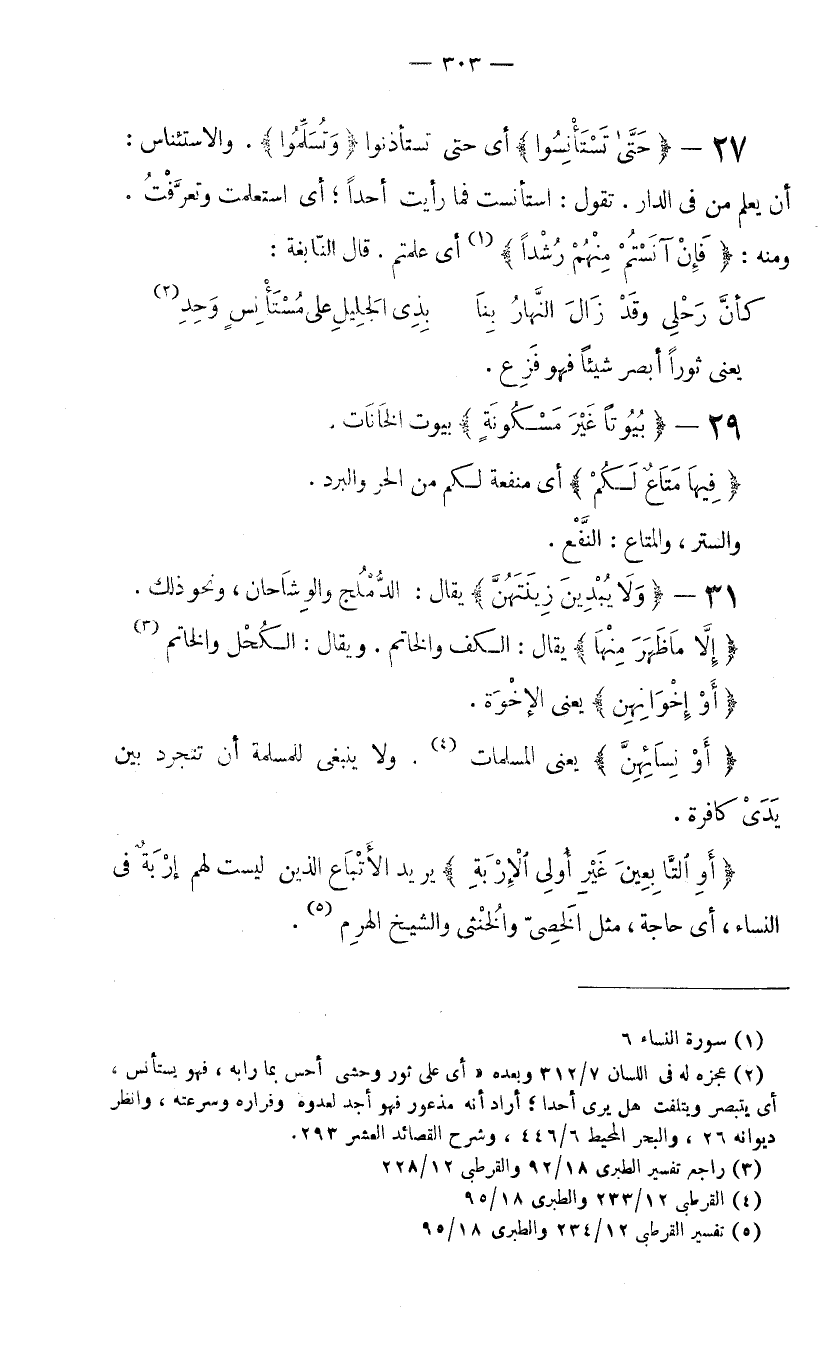 — ٣٠٣ —
٢٧ — ﴿ حَتَّىٰ تَسْتَأْنِسُوا ﴾ أى حتى تستأذنوا ﴿ وَتُسَلِّمُوا ﴾ . والاستئناس :
أن يعلم من فى الدار . تقول : استأنست فما رأيت أحداً ؛ أى استعلمت وتعرَّفْتُ .
ومنه : ﴿ فَإِنْ آنَسْتُمْ مِنْهُمْ رُشْداً ﴾ (١) أى علمتم . قال النَّابغة :
كأنَّ رَحْلِى وقَدْ زَالَ النَّهارُ بِنَا بِذِى الجَلِيلِ على مُسْتَأْنِسٍ وَحِدِ (٢)
يعنى ثوراً أبصر شيئاً فهو فَزِع .
٢٩ — ﴿ بُيُوتاً غَيْرَ مَسْكُونَةٍ ﴾ بيوت الخَانَات .
﴿ فِيهَا مَتَاعٌ لَكُمْ ﴾ أى منفعة لكم من الحر والبرد .
والستر ، والمتاع : النَّفْع .
٣١ — ﴿ وَلَا يُبْدِينَ زِينَتَهُنَّ ﴾ يقال : الدُّمْلُج والوِشَاحان ، ونحو ذلك .
﴿ إِلَّا مَاظَهَرَ مِنْهَا ﴾ يقال : الكف والخاتم . ويقال : الكُحْل والخاتم (٣)
﴿ أَوْ إِخْوَانِهِن ﴾ يعنى الإخْوَة .
﴿ أَوْ نِسَائِهِنَّ ﴾ يعنى المسلمات (٤) . ولا ينبغى للمسلمة أن تتجرد بين
يَدَىْ كافرة .
﴿ أَوِ ٱلتَّابِعِينَ غَيْرِ أُولِى ٱلْإِرْبَةِ ﴾ يريد الأَتْبَاع الذين ليست لهم إرْبَةٌ فى
النساء ، أى حاجة ، مثل الَخصِىّ والُخنْثى والشيخ الهرِم (٥) .
(١) سورة النساء ٦
(٢) عجزه له فى اللسان ٣١٢/٧ وبعده « أى على ثور وحشى أحس بما رابه ، فهو يستأنس ،
أى يتبصر ويتلفت هل يرى أحدا ؛ أراد أنه مذعور فهو أجد لعدوه وفراره وسرعته ، وانظر
ديوانه ٢٦ ، والبحر المحيط ٤٤٦/٦ ، وشرح القصائد العشر ٢٩٣.
(٣) راجع تفسير الطبرى ٩٢/١٨ والقرطبى ٢٢٨/١٢
(٤) القرطبى ٢٣٣/١٢ والطبرى ٩٥/١٨
(٥) تفسير القرطبى ٢٣٤/١٢ والطبرى ٩٥/١٨